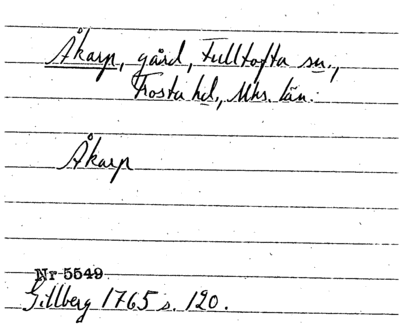 Åkarp, gård, Fulltofta sn.,
Frosta hd., Mhs. län.
Åkarp
Nr 5549
Gillberg 1765 s. 120.